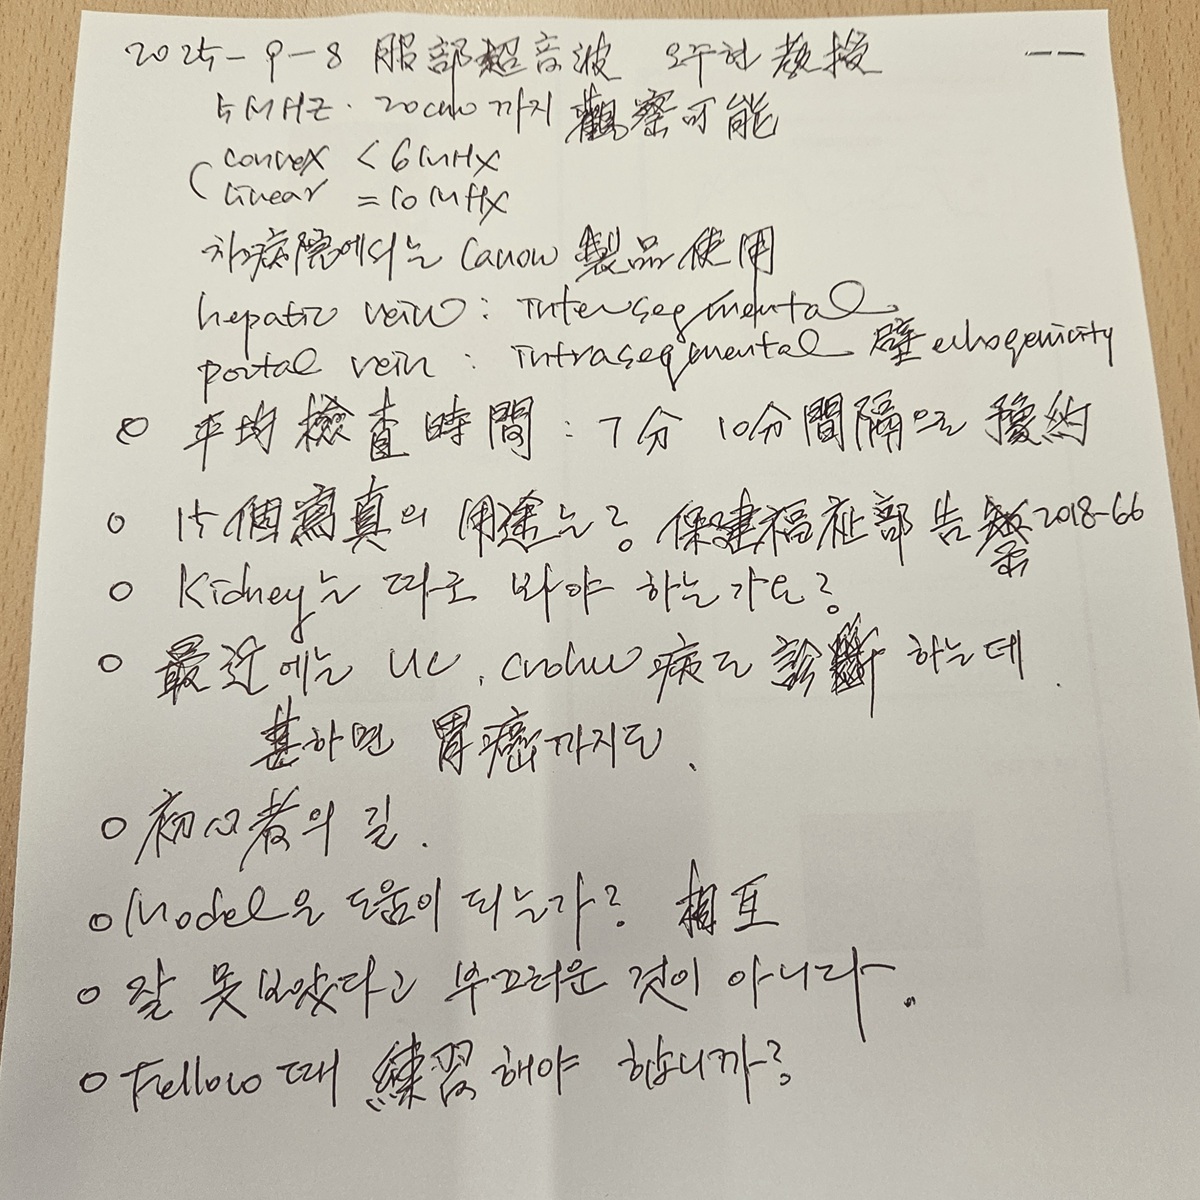 2025-9-8 服部超音波 오주현 教授
5MHZ. 20cm까지 觀察可能
convex < 6MHx
linear = 10MHx
차病院에서는 Canon 製品使用
hepatic vein : intersegmental
portal vein : intrasegmental 壁echogenicity
○ 平均檢査時間 : 7分 10分間隔으로 豫約
○ 15個寫眞의 用途는? 保健福祉部告示2018-66
○ Kidney는 따로 봐야 하는가요?
○ 最近에는 UC, crohn病도 診斷하는데.
甚하면 胃癌까지도.
○ 初心者의 길.
○ Model은 도움이 되는가? 相互
○ 잘 못 보았다고 부끄러운 것이 아니다.
○ Fellow때 練習해야 합니까?